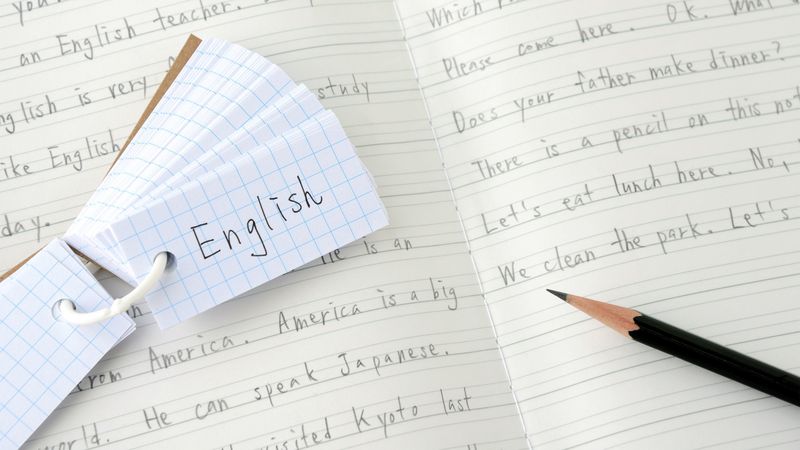 an English teacher.
English is very
study
like English
day.
English
He is an
from America. America is a big
world. He can speak Japanese.
visited Kyoto last
Which
Please come here. OK. What
Does your father make dinner?
There is a pencil on this
Let's eat lunch here. No,
We clean the park. Let's